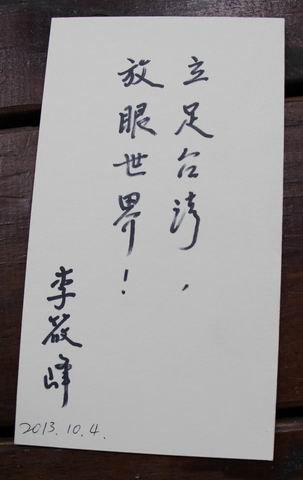 立足台湾，
放眼世界！
李筱峰
2013.10.4.